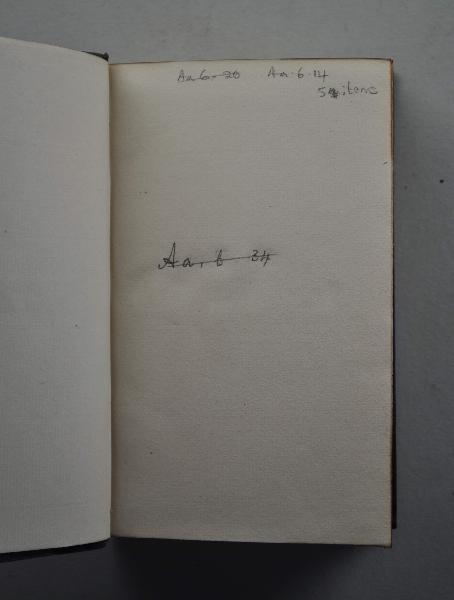 Aa 6. 20 Aa. 6. 14
5 items
Aa. 6 34